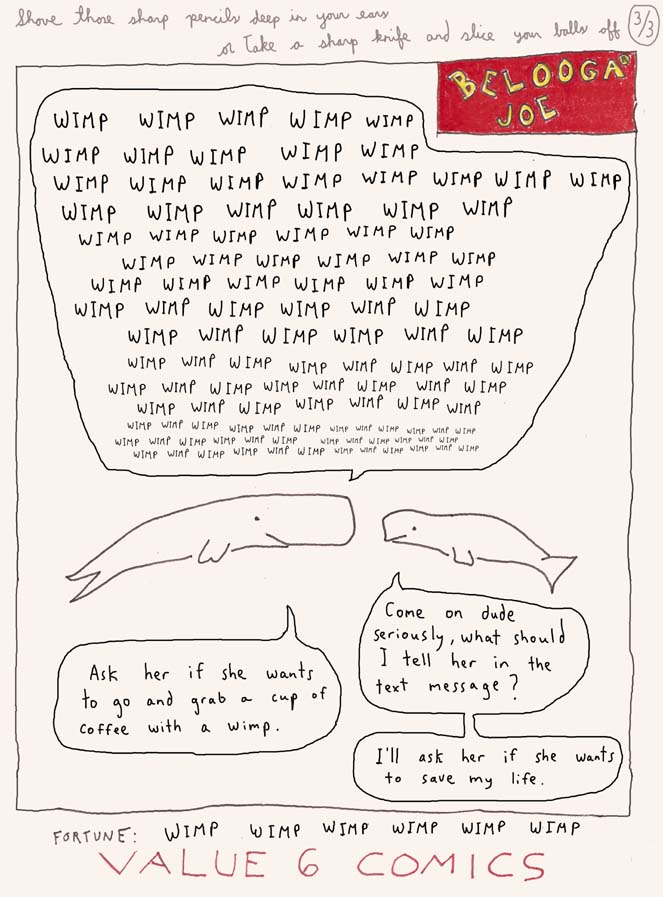 Shove those sharp pencils deep in your ears
or Take a sharp knife and slice your balls off 3/3
BELOOGA
JOE
WIMP WIMP WIMP WIMP WIMP
WIMP WIMP WIMP WIMP WIMP
WIMP WIMP WIMP WIMP WIMP WIMP WIMP WIMP
WIMP WIMP WIMP WIMP WIMP WIMP
WIMP WIMP WIMP WIMP WIMP WIMP
WIMP WIMP WIMP WIMP WIMP WIMP
WIMP WIMP WIMP WIMP WIMP WIMP
WIMP WIMP WIMP WIMP WIMP WIMP
WIMP WIMP WIMP WIMP WIMP WIMP
WIMP WIMP WIMP WIMP WIMP WIMP WIMP WIMP
WIMP WIMP WIMP WIMP WIMP WIMP WIMP WIMP
WIMP WIMP WIMP WIMP WIMP WIMP WIMP
WIMP WIMP WIMP WIMP WIMP WIMP WIMP WIMP WIMP WIMP WIMP
WIMP WIMP WIMP WIMP WIMP WIMP WIMP WIMP WIMP WIMP WIMP
WIMP WIMP WIMP WIMP WIMP WIMP WIMP WIMP WIMP WIMP WIMP
Come on dude
seriously, what should
I tell her in the
text message?
Ask her if she wants
to go and grab a cup of
coffee with a wimp.
I'll ask her if she wants
to save my life.
FORTUNE: WIMP WIMP WIMP WIMP WIMP WIMP
VALUE 6 COMICS